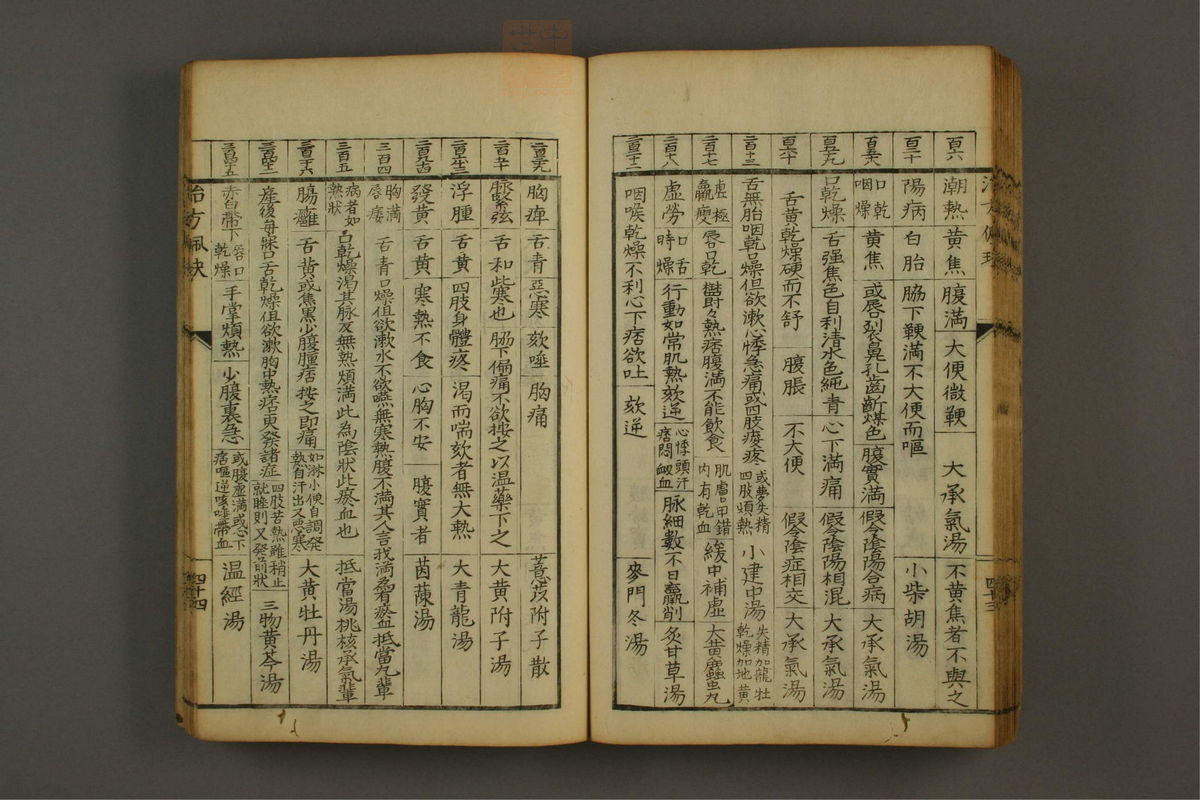 潮熱 黃焦 腹滿 大便微鞕 大承氣湯 不黃焦者不與之
陽病 白胎 脇下鞕滿不大便而嘔 小柴胡湯
口乾咽燥 黃焦 或唇裂鼻孔齒齗煤色 腹實滿 假令陰陽合病 大承氣湯
口乾燥 舌强焦色自利清水色純青 心下滿痛 假令陰陽相混 大承氣湯
舌黃乾燥硬而不舒 腹脹 不大便 假令陰症相交 大承氣湯
舌無胎咽乾口燥但欲漱 心悸急痛或四肢疼 或夢失精四肢煩熱 小建中湯 失精加龍牡乾燥加地黃
虛極羸瘦 唇口乾 欝々熱痞腹滿不能飲食 肌膚甲錯內有乾血 緩中補虛 大黃䗪虫丸
虛勞 口舌時燥 行動如常肌熱欬逆 心悸頭汗痞悶衂血 脉細數不日羸削 炙甘草湯
咽喉乾燥不利心下痞欲吐 欬逆 麥門冬湯
四十三
胸痺 舌青 惡寒 欬唾 胸痛 薏苡附子散
脉緊弦 舌和此寒也 脇下偏痛不欲按之以温藥下之 大黃附子湯
浮腫 舌黃 四肢身體疼 渴而喘欬者無大熱 大青龍湯
發黃 舌黃 寒熱不食 心胸不安 腹實者 茵蔯湯
三百四 胸滿唇痿 舌青口燥但欲漱水不欲嚥無寒熱腹不滿其人言我滿為有瘀血 抵當丸輩
三百五 病者如熱狀 口乾燥渴其脉反無熱煩滿此為陰狀此瘀血也 抵當湯桃核承氣輩
腸癰 舌黃或焦黑少腹腫痞按之即痛 如淋小便自調發熱自汗出又惡寒 大黃牡丹湯
產後每牀口舌乾燥但欲漱胸中熱痞更發諸症 四肢苦熱雖稍止就睡則又發前狀 三物黃芩湯
赤白帶下 唇口乾燥 手掌煩熱 少腹裏急 或腹虛滿或心下痞嘔逆咳唾帶血 温經湯
治方
四十四